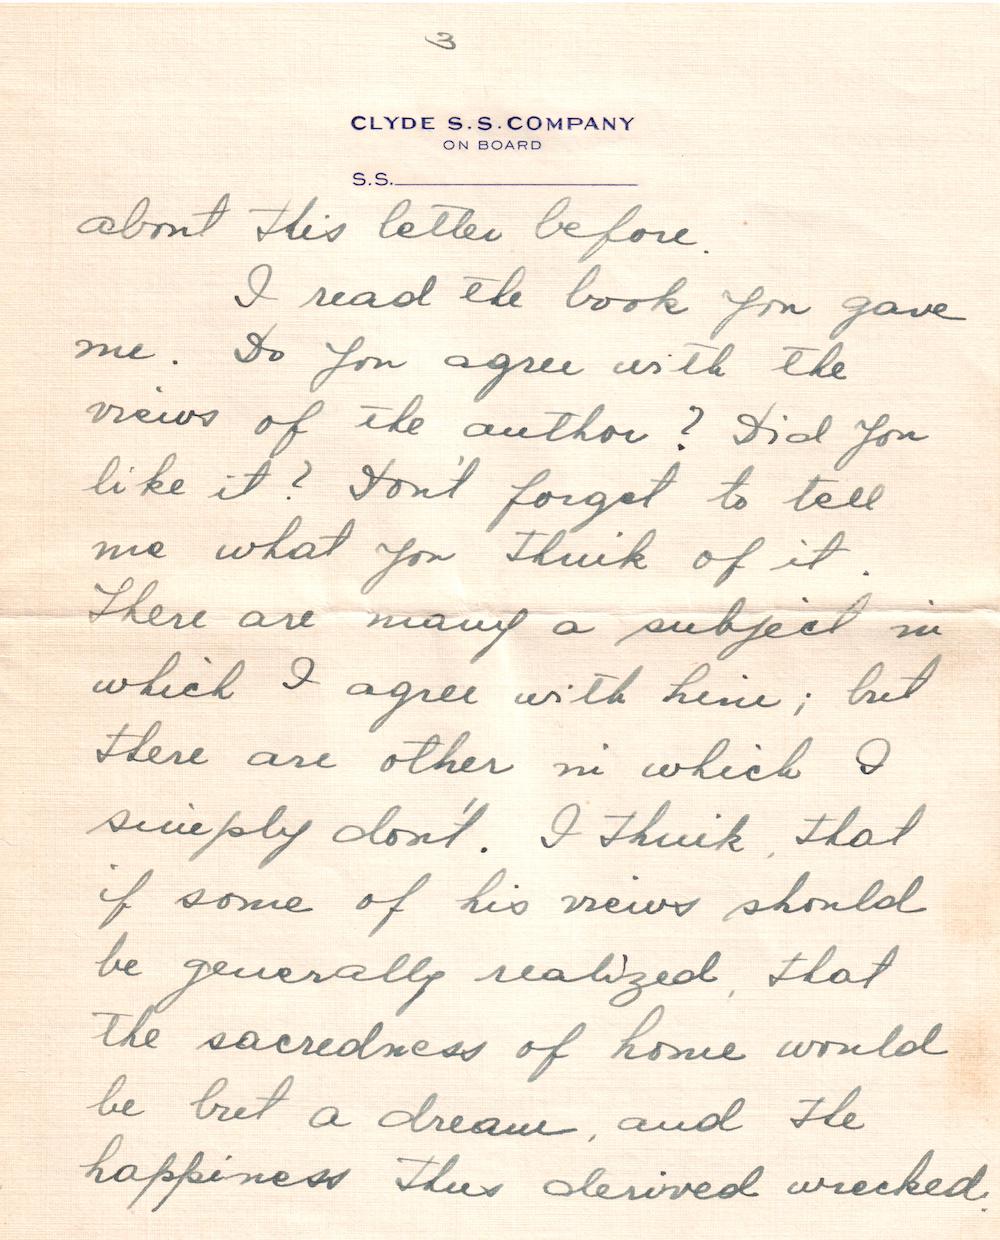 3
CLYDE S.S. COMPANY
ON BOARD
S.S.
about this letter before.
I read the book you gave
me. Do you agree with the
views of the author? Did you
like it? Don't forget to tell
me what you think of it.
There are many a subject in
which I agree with him; but
there are other in which I
simply don't. I think, that
if some of his views should
be generally realized, that
the sacredness of home would
be but a dream, and the
happiness thus derived wrecked.